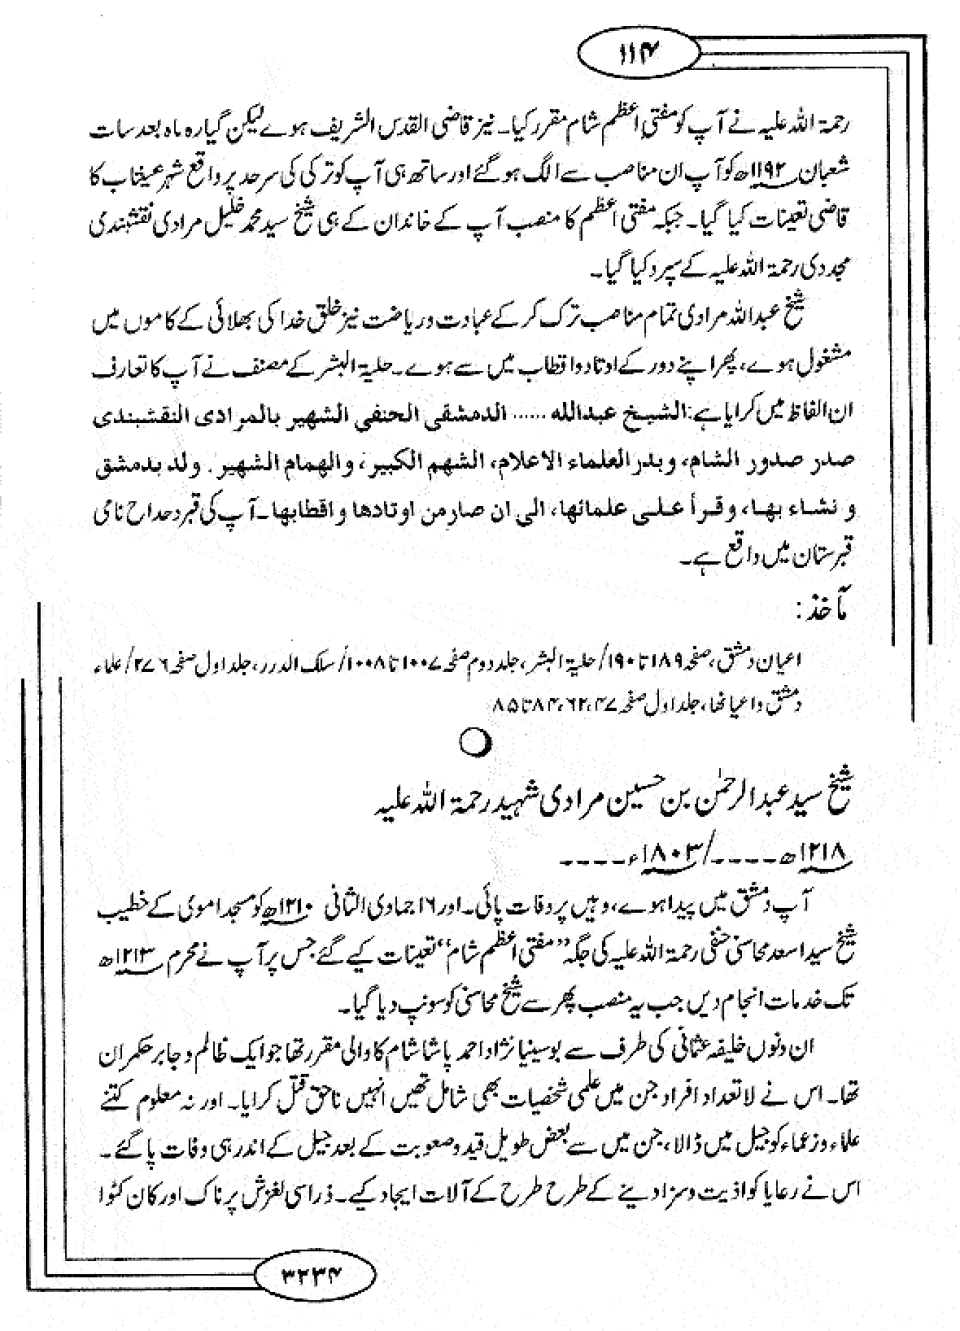 ۱۱۴
رحمۃ اللہ علیہ نے آپ کو مفتی اعظم شام مقرر کیا۔ نیز قاضی القدس الشریف ہوے لیکن گیارہ ماہ بعد سات
شعبان ۱۱۹۲ھ کو آپ ان مناصب سے الگ ہو گئے اور ساتھ ہی آپ کو ترکی کی سرحد پر واقع شہر عینتاب کا
قاضی تعینات کیا گیا۔ جبکہ مفتی اعظم کا منصب آپ کے خاندان کے ہی شیخ سید محمد خلیل مرادی نقشبندی
مجددی رحمۃ اللہ علیہ کے سپرد کیا گیا۔
شیخ عبداللہ مرادی تمام مناصب ترک کر کے عبادت و ریاضت نیز خلق خدا کی بھلائی کے کاموں میں
مشغول ہوے، پھر اپنے دور کے اوتاد و اقطاب میں سے ہوے۔ حلیۃ البشر کے مصنف نے آپ کا تعارف
ان الفاظ میں کرایا ہے: الشیخ عبدالله ...... الدمشقی الحنفی الشهیر بالمرادی النقشبندی
صدر صدور الشام، وبدر العلماء الاعلام، الشهم الکبیر، والهمام الشهیر. ولد بدمشق
و نشاء بها، وقرأ علی علمائها، الی ان صار من اوتادها و اقطابها۔ آپ کی قبر دحداح نامی
قبرستان میں واقع ہے۔
مآخذ:
اعیان دمشق، صفحہ ۱۸۹ تا ۱۹۰/ حلیۃ البشر، جلد دوم صفحہ ۱۰۰۷ تا ۱۰۰۸/ سلک الدرر، جلد اول صفحہ ۲۷۶/ علماء
دمشق و اعیانھا، جلد اول صفحہ ۴۷، ۶۲، ۸۴ تا ۸۵
شیخ سید عبدالرحمٰن بن حسین مرادی شہید رحمۃ اللہ علیہ
۱۲۱۸ھ----/۱۸۰۳ء----
آپ دمشق میں پیدا ہوے، وہیں پر وفات پائی۔ اور ۱۶ جمادی الثانی ۱۲۱۰ھ کو مسجد اموی کے خطیب
شیخ سید اسعد محاسنی حنفی رحمۃ اللہ علیہ کی جگہ ”مفتی اعظم شام“ تعینات کیے گئے جس پر آپ نے محرم ۱۲۱۳ھ
تک خدمات انجام دیں جب یہ منصب پھر سے شیخ محاسنی کو سونپ دیا گیا۔
ان دنوں خلیفہ عثمانی کی طرف سے بوسینیا نژاد احمد پاشا شام کا والی مقرر تھا جو ایک ظالم و جابر حکمران
تھا۔ اس نے لاتعداد افراد جن میں علمی شخصیات بھی شامل تھیں انہیں ناحق قتل کرایا۔ اور نہ معلوم کتنے
علماء و زعماء کو جیل میں ڈالا، جن میں سے بعض طویل قید و صعوبت کے بعد جیل کے اندر ہی وفات پا گئے۔
اس نے رعایا کو اذیت و سزا دینے کے طرح طرح کے آلات ایجاد کیے۔ ذرا سی لغزش پر ناک اور کان کٹوا
۳۲۳۴